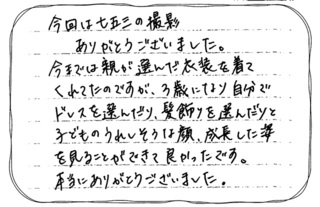 今回は七五三の撮影
ありがとうございました。
今までは親が選んだ衣装を着て
くれてたのですが、3歳になり自分で
ドレスを選んだり、髪飾りを選んだりと
子どものうれしそうな顔、成長した姿
を見ることができて良かったです。
本当にありがとうございました。